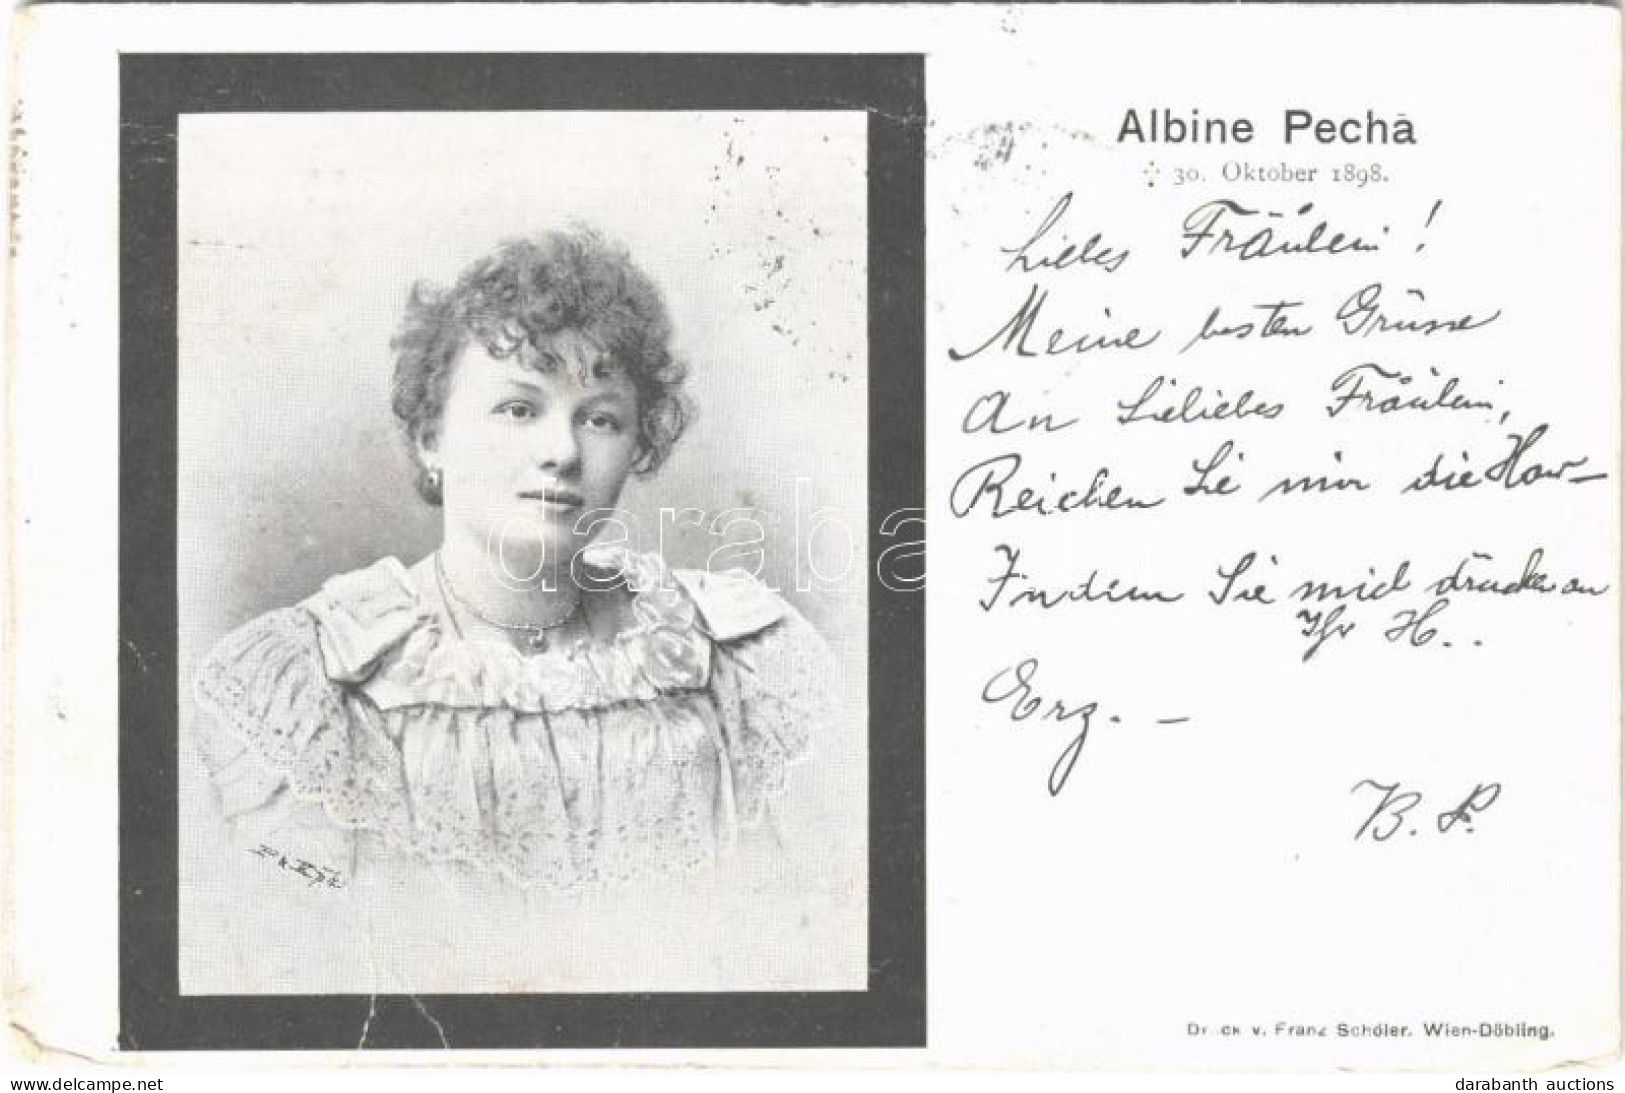 Albine Pecha
† 30. Oktober 1898.
Liebes Fräulein!
Meine besten Grüsse
An Liebes Fräulein,
Reichen Sie mir die
Indem Sie mich drücken an
Ihr H..
Erz. –
B. P.
darabanth
Druck v. Franz Schöler. Wien-Döbling.
akhdelcampe.net
darabanth auctions